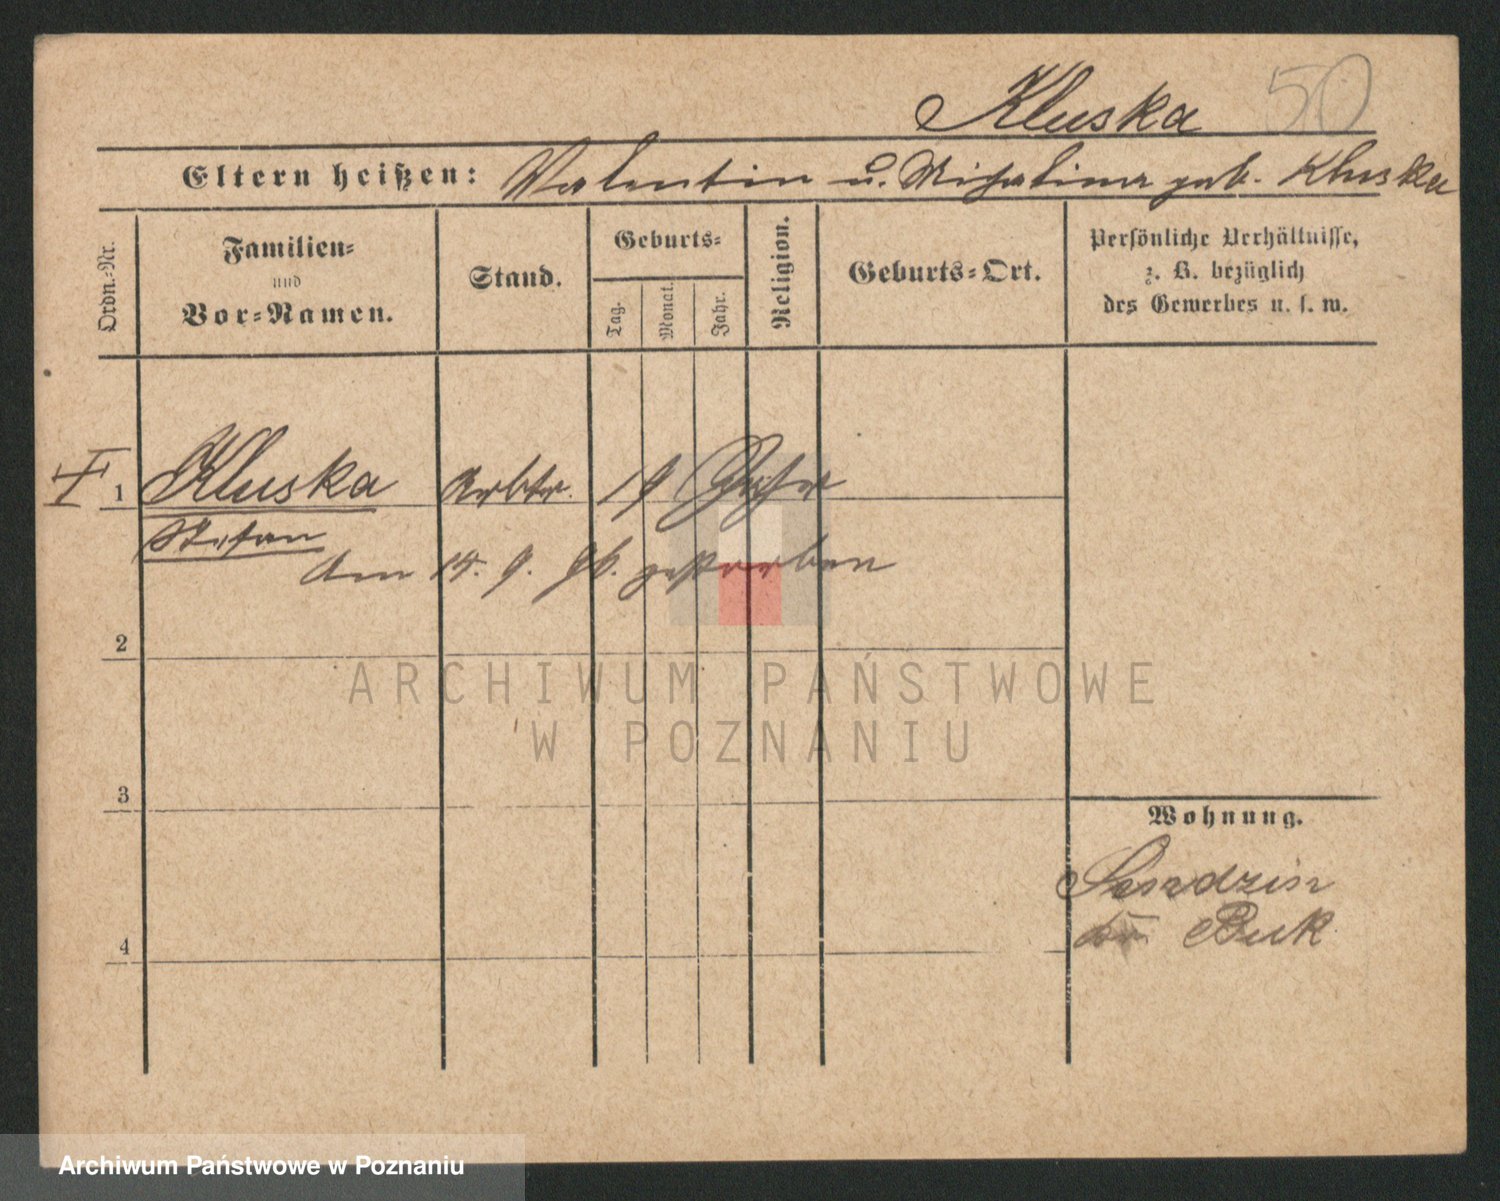 Kluska 50
Eltern heißen: Valentin u. Michalina geb. Kluska
Ordn.-Nr.
Familien-
und
Vor-Namen.
Stand.
Geburts-
Tag.
Monat.
Jahr.
Religion.
Geburts-Ort.
Persönliche Verhältnisse,
z. B. bezüglich
des Gewerbes u. s. w.
1 Kluska Arbtr. 19 Jahre
Stefan
Am 15. 9. 96. gestorben
2
3
4
Wohnung.
Sendzin
Buk
ARCHIWUM PAŃSTWOWE
W POZNANIU
Archiwum Państwowe w Poznaniu